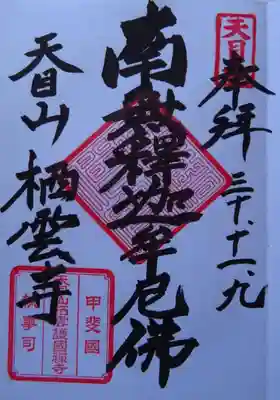 天目
奉拜 三十、十一、九
南無釋迦牟尼佛
天目山 栖雲寺
甲斐國
天目山栖雲護國禪寺
執事司